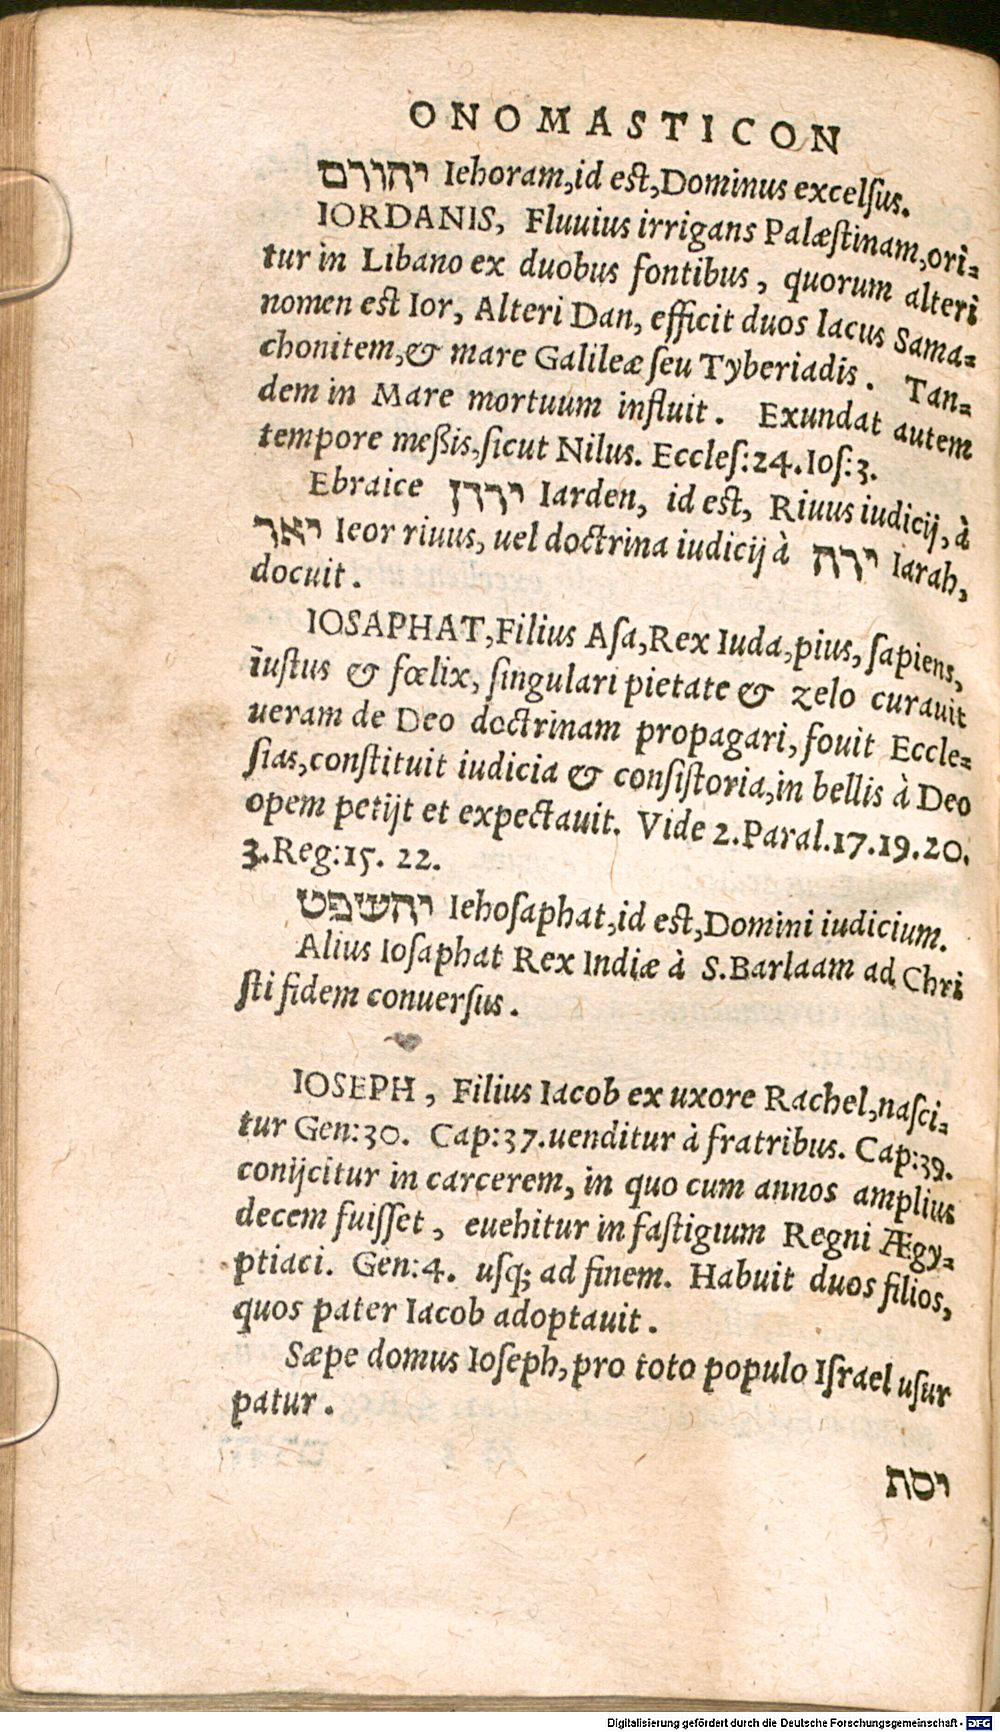 ONOMASTICON
יהורם Iehoram,id est,Dominus excelſus.
IORDANIS, Fluuius irrigans Palæſtinam,ori-
tur in Libano ex duobus fontibus, quorum alteri
nomen est Ior, Alteri Dan, efficit duos lacus Sama-
chonitem,& mare Galileæ ſeu Tyberiadis. Tan-
dem in Mare mortuum influit. Exundat autem
tempore meßis,ſicut Nilus. Eccleſ:24.Ioſ:3.
Ebraice ירדן Iarden, id est, Riuus iudicij, à
יאר Ieor riuus, uel doctrina iudicij à ירה Iarah,
docuit.
IOSAPHAT,Filius Aſa,Rex Iuda,pius, ſapiens,
iuſtus & fœlix, ſingulari pietate & zelo curauit
ueram de Deo doctrinam propagari, fouit Eccle-
ſias,conſtituit iudicia & conſiſtoria,in bellis à Deo
opem petijt et expectauit. Vide 2.Paral.17.19.20.
3.Reg:15. 22.
יהשפט Iehoſaphat,id est,Domini iudicium.
Alius Ioſaphat Rex Indiæ à S.Barlaam ad Chri
ſti fidem conuerſus.
IOSEPH, Filius Iacob ex uxore Rachel,naſci-
tur Gen:30. Cap:37.uenditur à fratribus. Cap:39.
conijcitur in carcerem, in quo cum annos amplius
decem fuiſſet, euehitur in faſtigium Regni Ægy-
ptiaci. Gen:4. uſq; ad finem. Habuit duos filios,
quos pater Iacob adoptauit.
Sæpe domus Ioſeph, pro toto populo Iſrael uſur
patur.
יסת
Digitalisierung gefördert durch die Deutsche Forschungsgemeinschaft - DFG